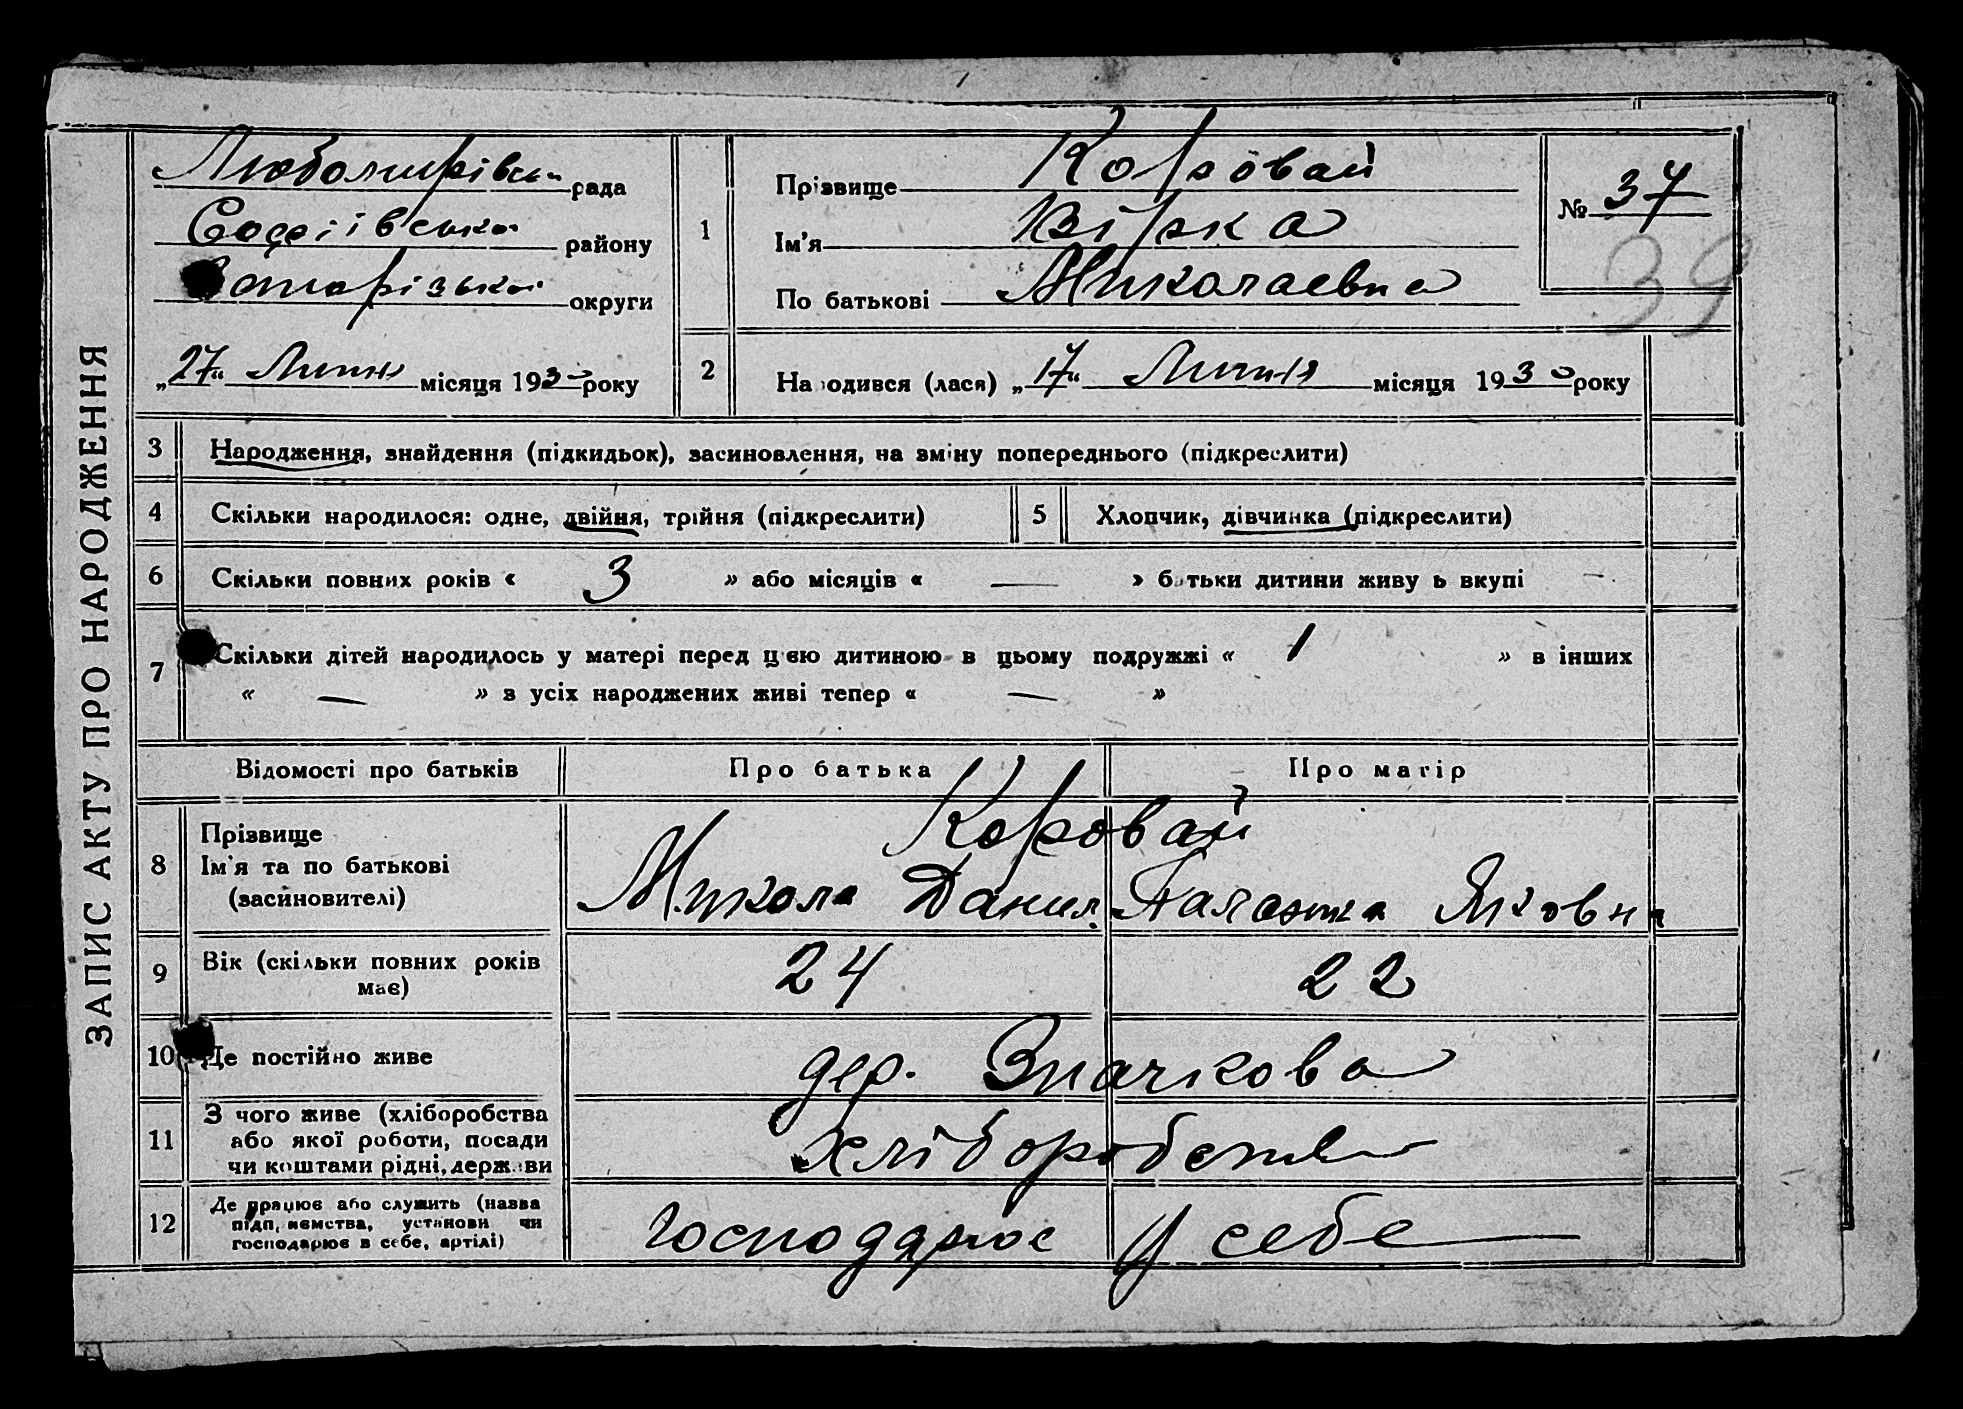 ЗАПИС АКТУ ПРО НАРОДЖЕННЯ
Любомирівськ рада
Софіївсько району
Запорізької округи
„27“ Липня місяця 1930 року
1
Прізвище Коровай
Ім’я Вірка
По батькові Миколаевна
№ 37
39
2
Народився (лася) „17“ Липня місяця 1930 року
3 Народження, знайдення (підкидьок), засиновлення, на зміну попереднього (підкреслити)
4 Скільки народилося: одне, двійня, трійня (підкреслити) 5 Хлопчик, дівчинка (підкреслити)
6 Скільки повних років « 3 » або місяців « — » батьки дитини живуть вкупі —
7 Скільки дітей народилось у матері перед цією дитиною в цьому подружжі « 1 » в інших
« — » з усіх народжених живі тепер « — »
Відомості про батьків Про батька Про матір
8 Прізвище
Ім’я та по батькові
(засиновителі)
Коровай
Микола Данил. Палажка Яковна
9 Вік (скільки повних років
має)
24 22
10 Де постійно живе дер. Значкова
11 З чого живе (хліборобства
або якої роботи, посади
чи коштами рідні, держави
хліборобство
12 Де працює або служить (назва
підприємства, установи чи
господарює в себе, артілі)
господарює у себе